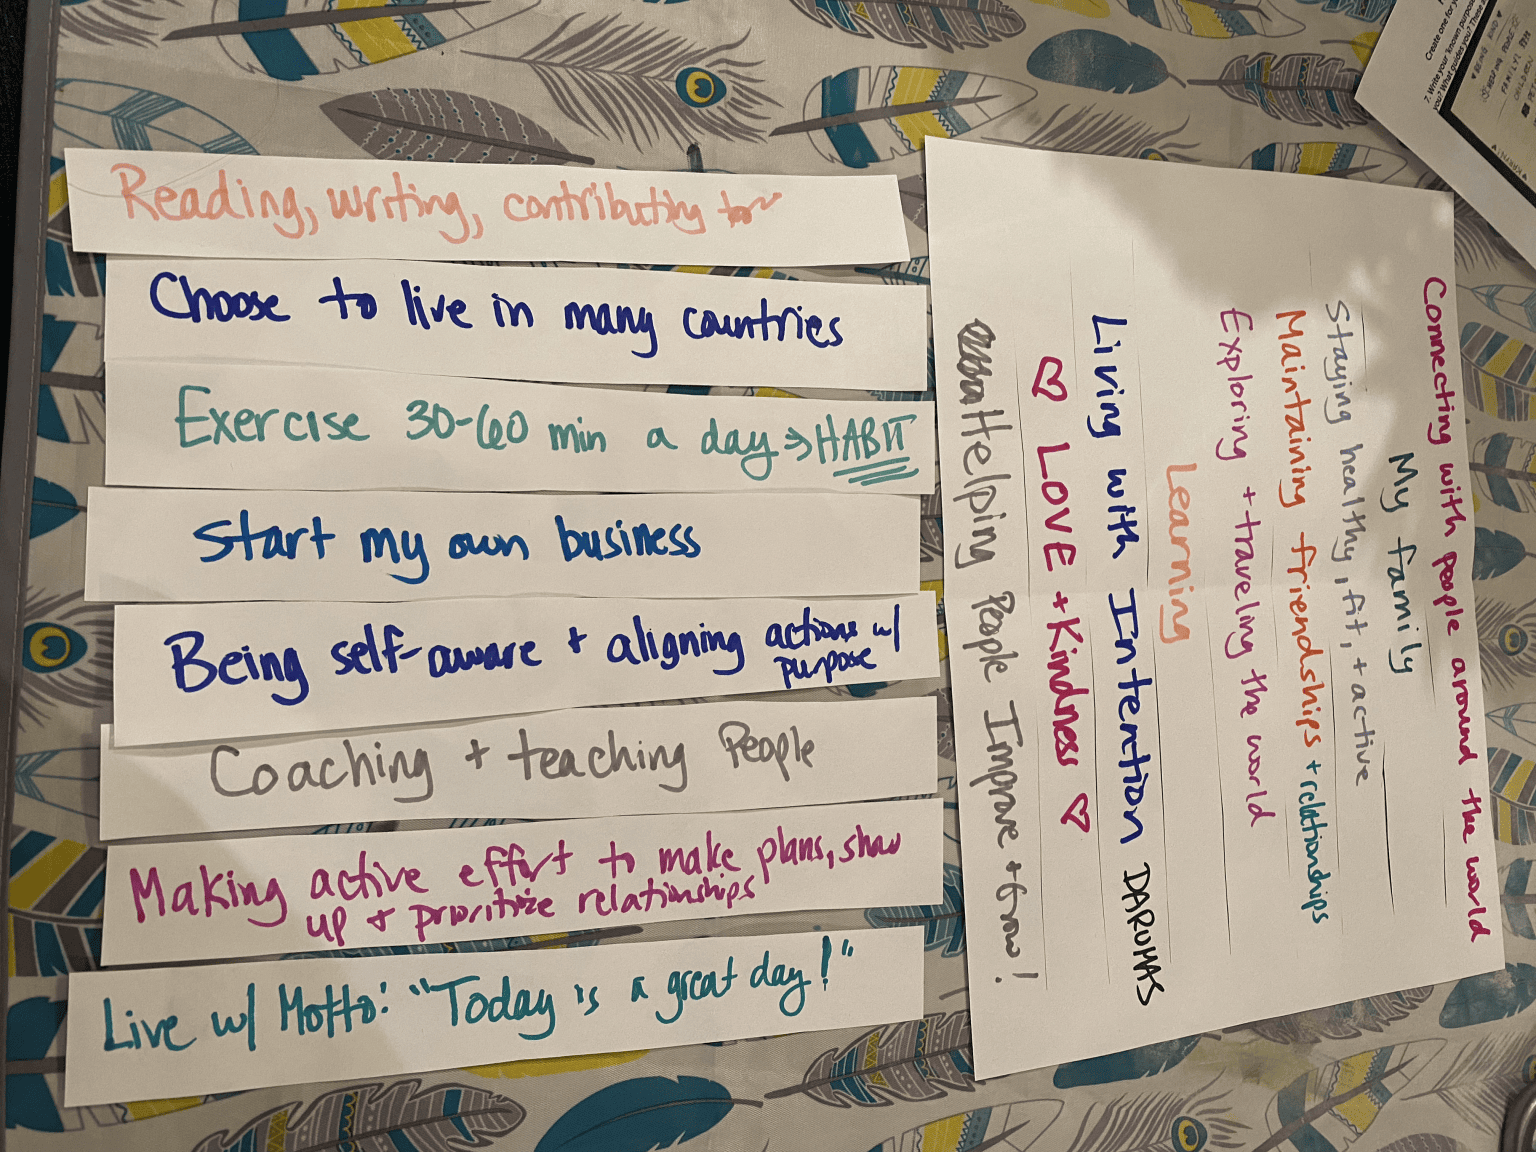 Reading, writing, contributing to
Choose to live in many countries
Exercise 30-60 min a day → HABIT
Start my own business
Being self-aware + aligning actions w/
purpose
Coaching + teaching People
Making active effort to make plans, show
up + prioritize relationships
Live w/ Motto: "Today is a great day!"
Connecting with people around the world
My family
Staying healthy, fit, + active
Maintaining friendships + relationships
Exploring + traveling the world
Learning
Living with Intention DARUMAS
♡ LOVE + Kindness ♡
Helping People Improve + Grow!
Create one for y
7. Write your "known purpos
you? What guides you? These a